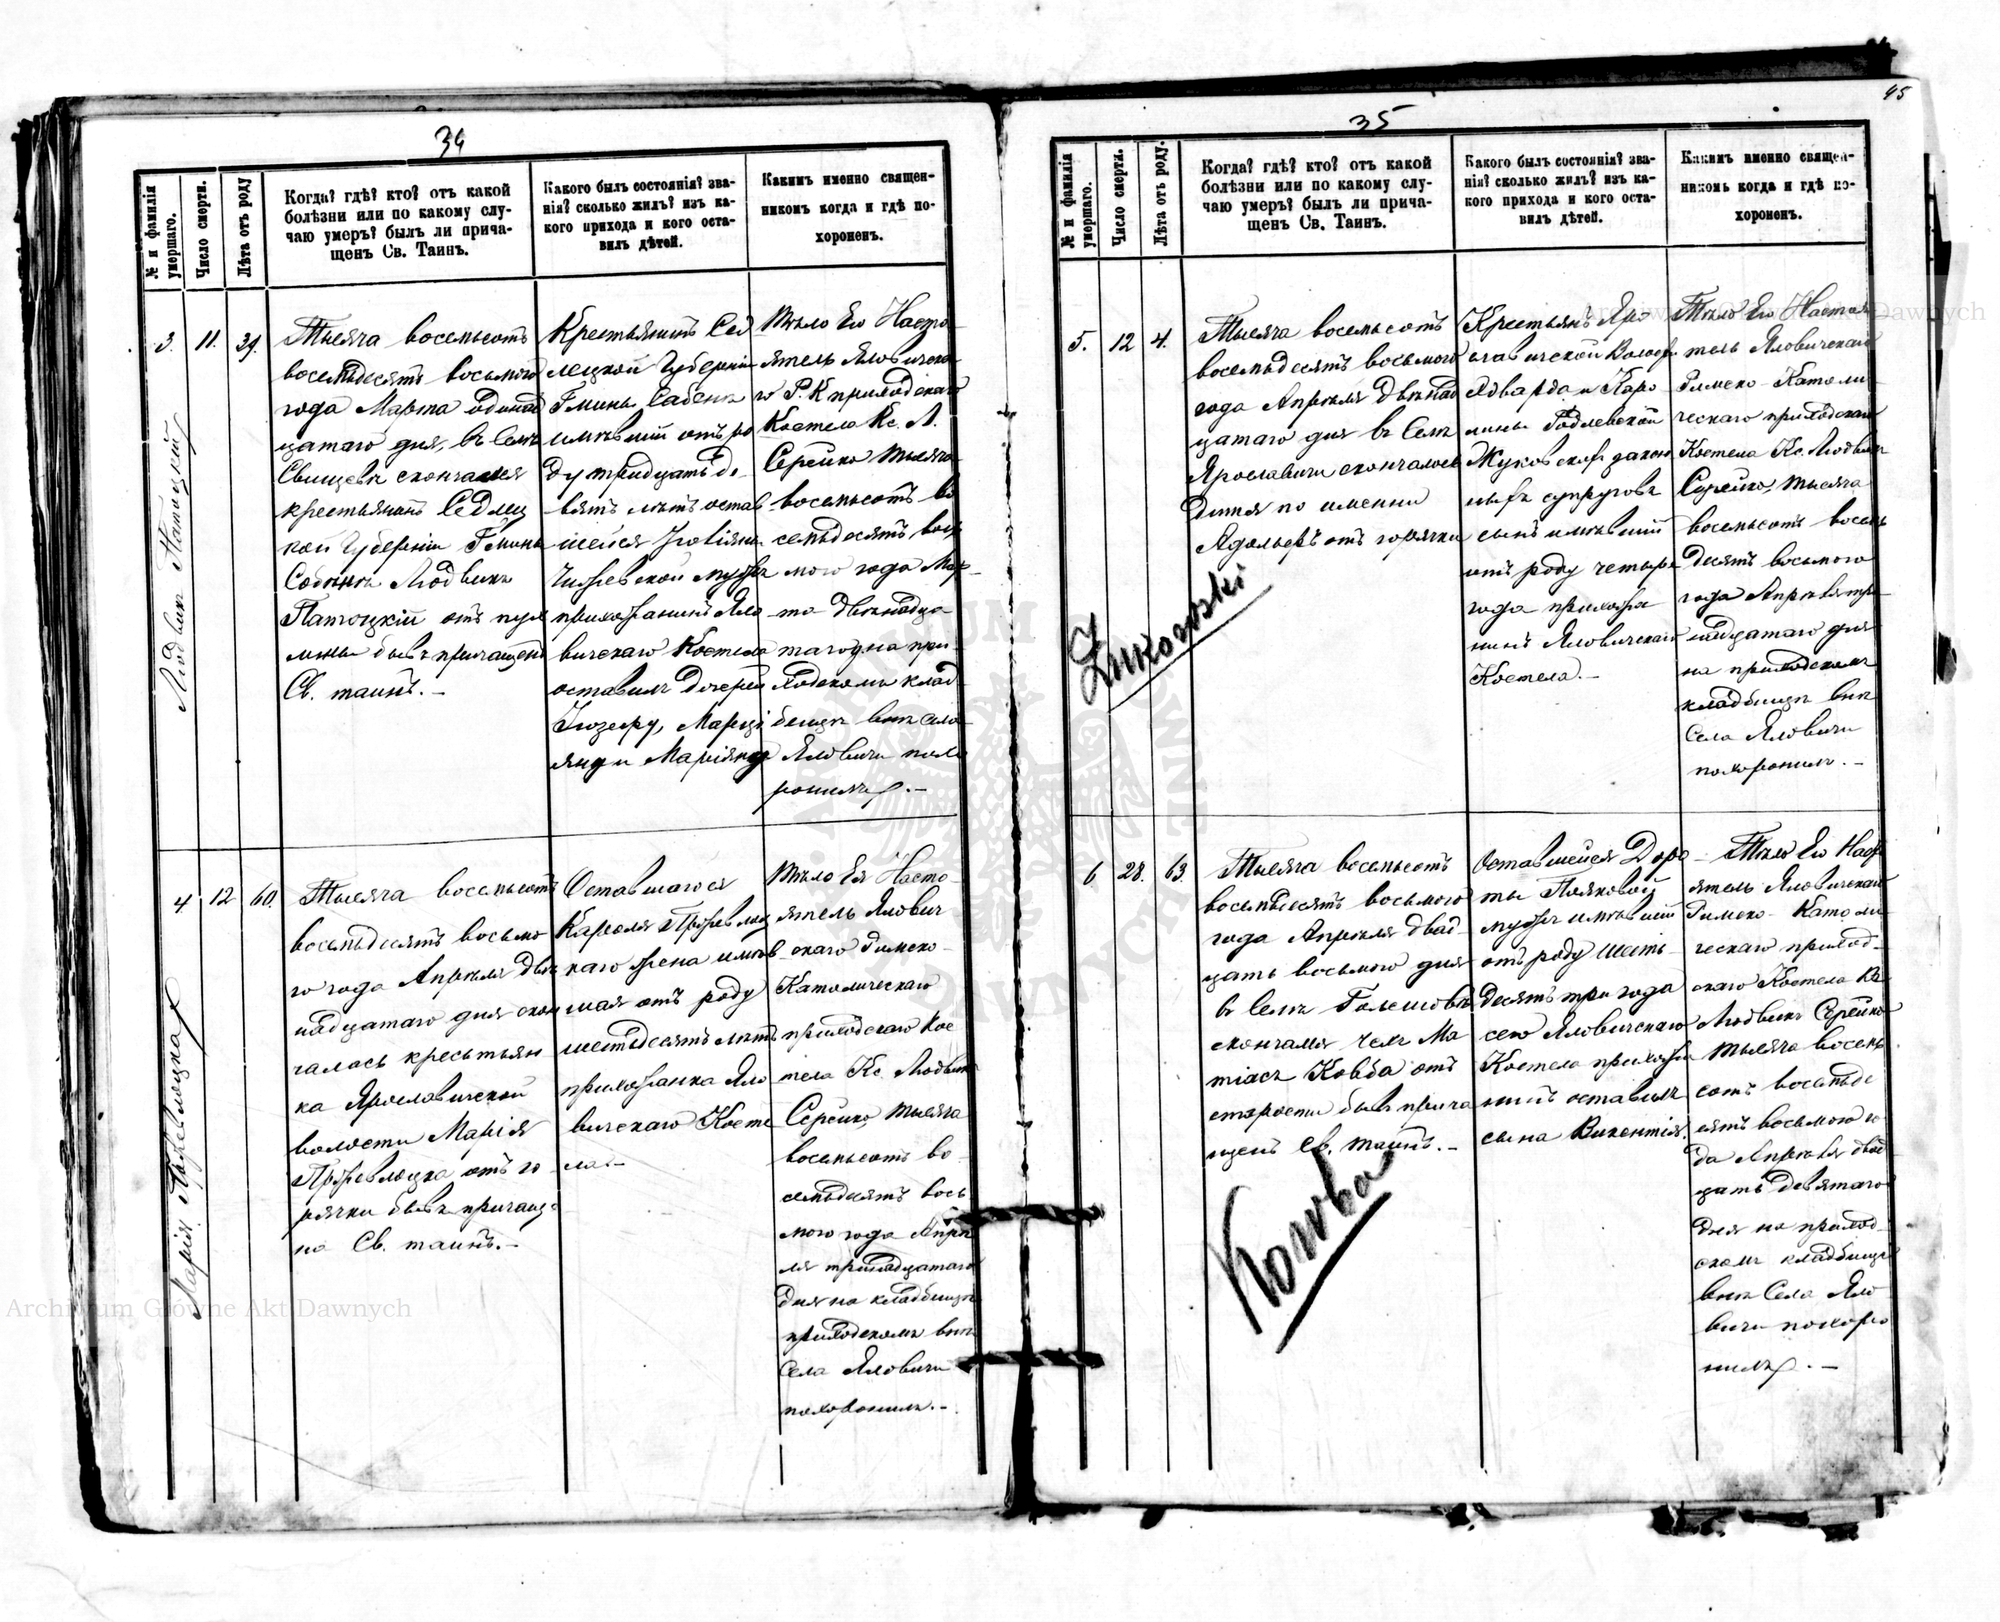 34
№ и фамилія умершаго.
Число смерти.
Лѣта отъ роду
Когда? гдѣ? кто? отъ какой
болѣзни или по какому слу-
чаю умеръ? былъ ли прича-
щенъ Св. Таинъ.
Какого былъ состоянія? зва-
нія? сколько жилъ? изъ ка-
кого прихода и кого оста-
вилъ дѣтей.
Какимъ именно священ-
никомъ когда и гдѣ по-
хороненъ.
3.
Людвик Патоцкій
11.
39.
Тысяча восемьсотъ
восемьдесятъ восьмого
года Марта одинад
цатаго дня, въ Селѣ
скончался
крестьянинъ Седлец
кой Губерніи Гмины
Сабѣнъ Людвикъ
Патоцкій отъ
былъ причащенъ
Св. таинъ. –
Крестьянинъ Сед
лецкой Губерніи
Гмины Сабень
имѣвшій отъ ро
ду тридцать де
вять лѣтъ остав
шейся
мужъ
прихожанинъ Яло
вичскаго Костела
оставилъ дочерей
Юзефу, Марці
янну и Маріянну
Тѣло Его Насто
ятель Яловичска
го Р. К приходскаго
Костела Кс. Л.
Серейко тысяча
восемьсотъ во
семьдесятъ вось
мого года Мар-
та двѣнадца
таго дня на при-
ходскомъ клад-
бищѣ внѣ села
Яловичи похо
ронилъ. –
4
Марія Пржевлоцка
12
60.
Тысяча восемьсотъ
восемьдесятъ восьмо
го года Апрѣля двѣ
надцатаго дня скон
чалась крестьян
ка Ярославичской
волости Марія
Пржевлоцка отъ го
рячки бывъ причаще
на Св. таинъ. –
Оставшагося
Кароля Пржевлоц
каго жена имѣв
шая отъ роду
шестьдесятъ лѣтъ
прихожанка Яло
вичскаго Косте
ла. –
Тѣло Ея Насто-
ятельЯлович
скаго Римско-
Католическаго
приходскаго Кос
тела Кс. Людвикъ
Серейко тысяча
восемьсотъ во-
семьдесятъ вось
мого года Апрѣ
ля тринадцатаго
дня на кладбищѣ
приходскомъ внѣ
Села Яловичи
похоронилъ. –
45
35
№ и фамилія умершаго.
Число смерти.
Лѣта отъ роду.
Когда? гдѣ? кто? отъ какой
болѣзни или по какому слу-
чаю умеръ? былъ ли прича-
щенъ Св. Таинъ.
Какого былъ состоянія? зва-
нія? сколько жилъ? изъ ка-
кого прихода и кого оста-
вилъ дѣтей.
Какимъ именно священ-
никомъ когда и гдѣ по-
хороненъ.
5.
12
4.
Тысяча восемьсотъ
восемьдесятъ восьмого
года Апрѣля двѣнад
цатаго дня въ Селѣ
Ярославичи скончалось
Дитя по имени
Адольфъ отъ горячки
Żukowski
Крестьянъ Яро
славичской Волости
Эдварда и Каро
лины Годлевской
Жуковскихъ закон
ныхъ супруговъ
сынъ имѣвшій
отъ роду четыре
года прихожа
нинъ Яловичскаго
Костела. –
Тѣло Его Настоя
тель Яловичскаго
Римско-Католи
ческаго приходскаго
Костела Кс. Людвикъ
Серейко, тысяча
восемьсотъ восемь
десятъ восьмого
года Апрѣля три-
надцатаго дня
на приходскомъ
кладбищѣ внѣ
Села Яловичи
похоронилъ. –
6
28.
63.
Тысяча восемьсотъ
восемьдесятъ восьмого
года Апрѣля двад-
цать восьмого дня
въ Селѣ
скончался
Ковба отъ
старости бывъ прича
щенъ Св. таинъ. –
Kowba
Оставшейся Доро
ты Поляковой
мужъ имѣвшій
отъ роду шесть
десятъ три года
сего Яловичскаго
Костела прихожа
нинъ оставилъ
сына Викентія.
Тѣло Его Насто
ятель Яловичскаго
Римско-Католи-
ческаго приход-
скаго Костела Кс.
Людвикъ Серейко
тысяча восемь
сотъ восемьде
сятъ восьмого го
да Апрѣля двад
цать девятаго
дня на приход-
скомъ кладбищѣ
внѣ Села Яло
вичи похоро
нилъ. –
Archiwum Główne Akt Dawnych
Archiwum Główne Akt Dawnych